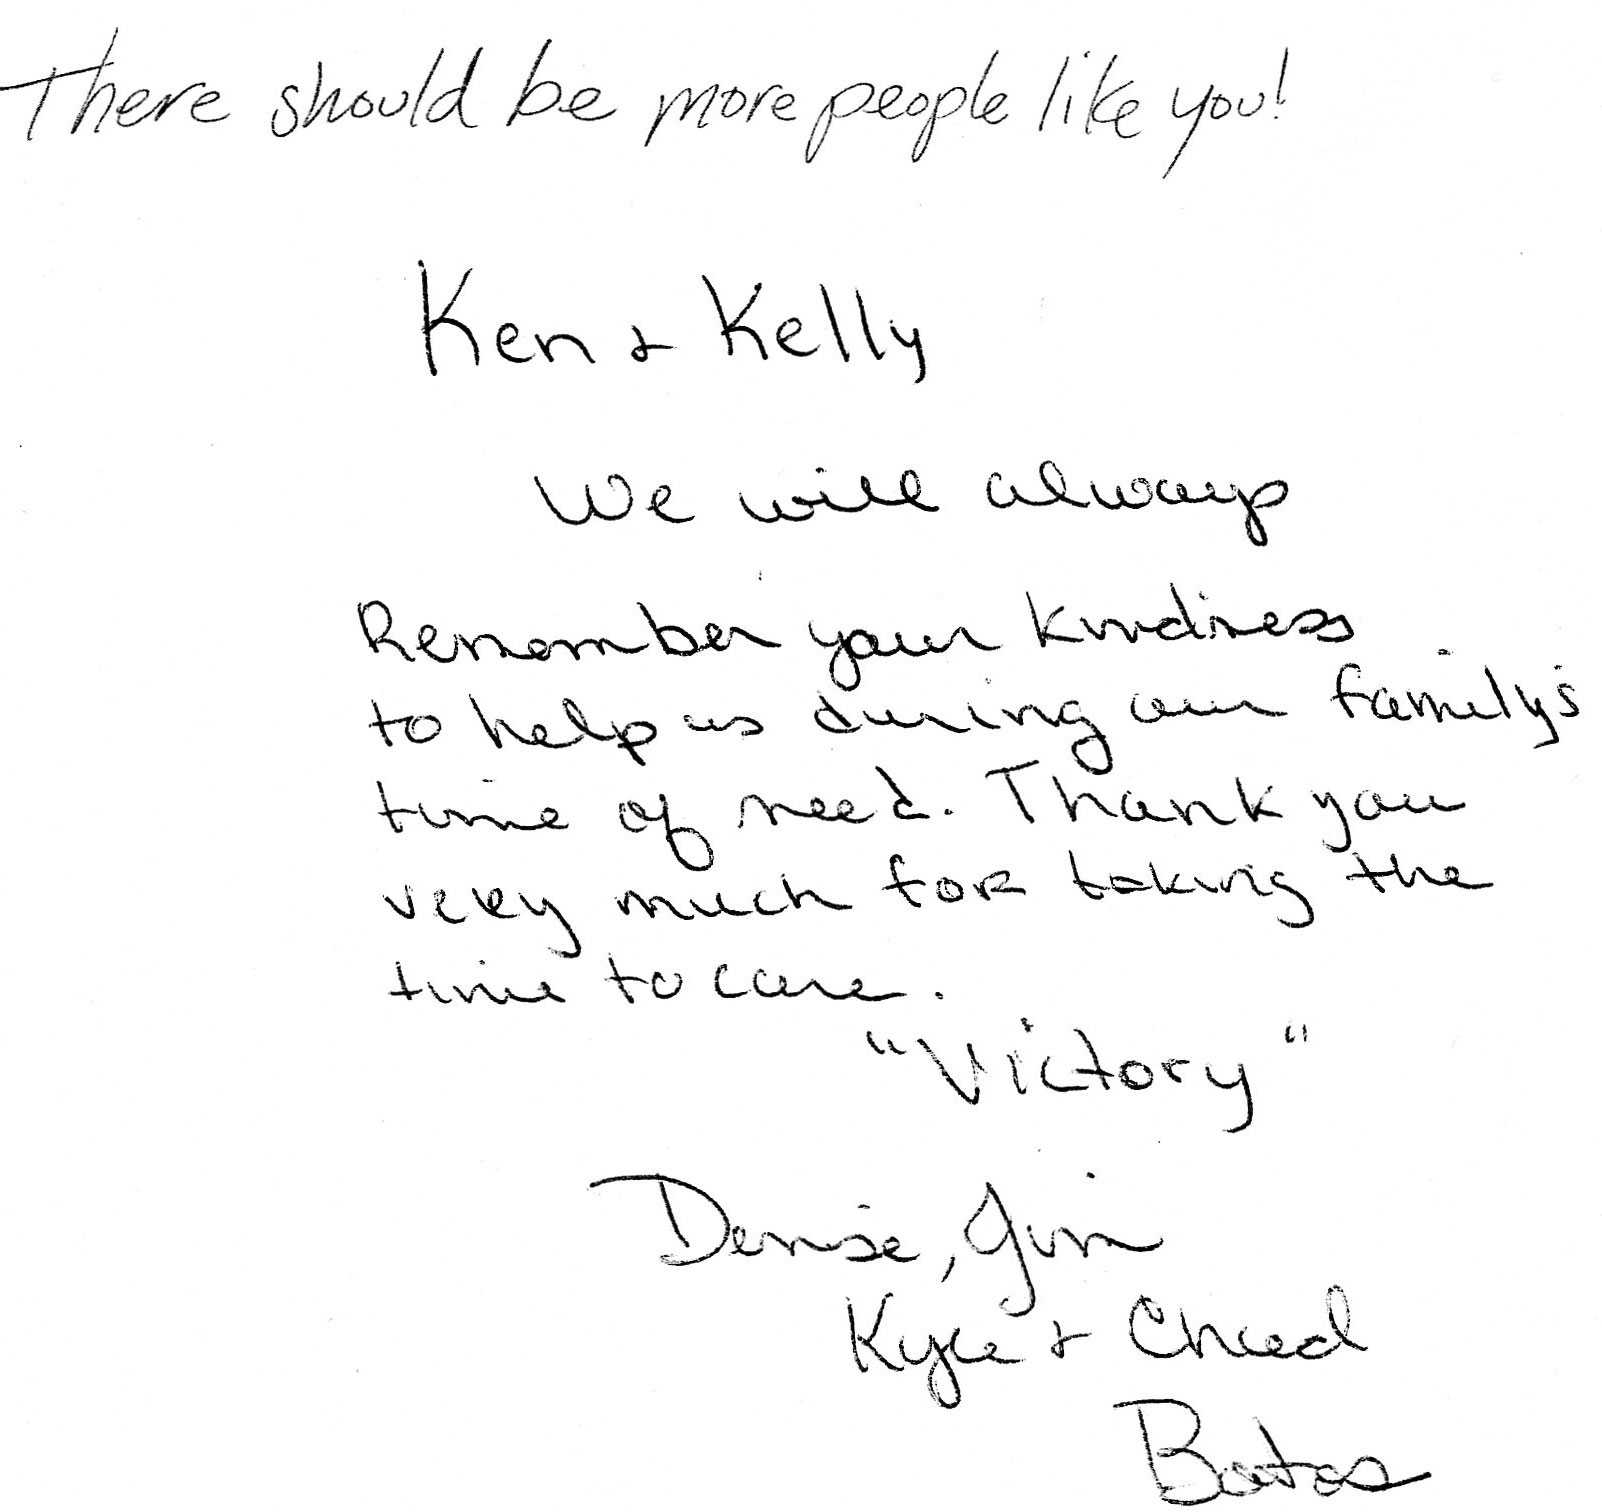 There should be more people like you!
Ken & Kelly
We will always
Remember your kindness
to help us during our family's
time of need. Thank you
very much for taking the
time to care.
"Victory"
Denise, Jim
Kyle & Chad
Batos